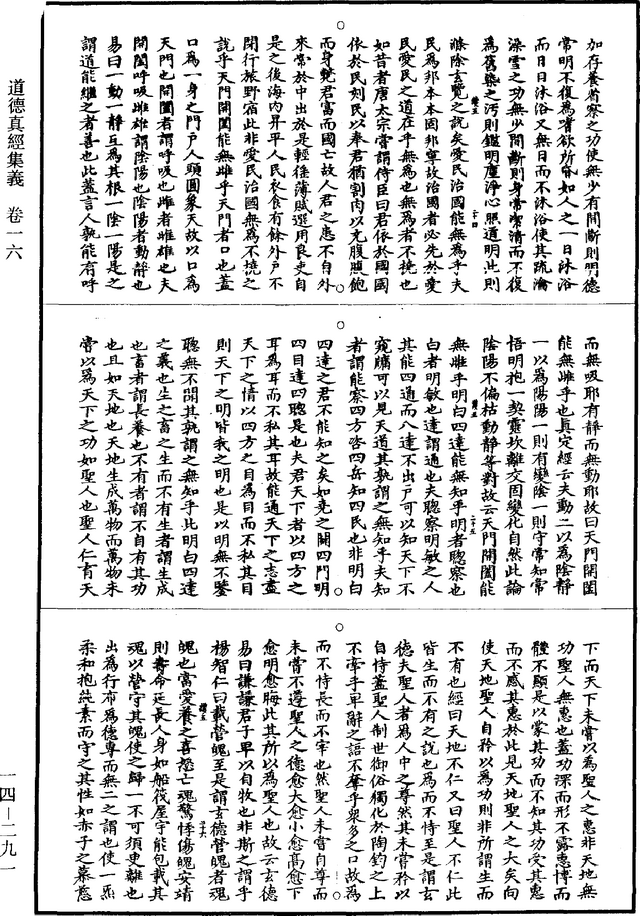 加存養省察之功使無少有間斷則明德
常明不復為嗜欲所昏如人之一日沐浴
而日日沐浴又無日而不沐浴使其疏瀹
澡雪之功無少間斷則身常潔清而不復
為舊染之汚則鑑明塵淨心照道明此則
滌除玄覽之說矣愛民治國能無為乎夫
民為邦本本固邦寧故治國者必先於愛
民愛民之道在乎無為也無為者不撓也
如昔者唐太宗嘗謂侍臣曰君依於國國
依於民刻民以奉君猶割肉以充腹腹飽
而身斃君富而國亡故人君之患不自外
來常於中出於是輕徭薄賦選用良吏自
是之後海內昇平人民衣食有餘外戶不
閉行旅野宿此非愛民治國無為不撓之
說乎天門開闔能無雌乎天門者口也蓋
口為一身之門戶人頭圓象天故以口為
天門也開闔者謂呼吸也雌者雌雄也夫
開闔呼吸雌雄謂陰陽也陰陽者動靜也
易曰一動一靜互為其根一陰一陽是之
謂道能繼之者善也此蓋言人孰能有呼
而無吸耶有靜而無動耶故曰天門開闔
能無雌乎也真定經云夫動二以為陰靜
一以為陽陽一則有變陰一則守常知常
悟明抱一契靈坎離交固變化自然此論
陰陽不偏枯動靜等對故云天門開闔能
無雌乎明白四達能無知乎明者聰察也
白者明敏也達謂通也夫聰察明敏之人
其能四通而八達不出戶可以知天下不
窺牖可以見天道其孰謂之無知乎夫知
者謂能察四方咨四岳知四民也非明白
四達之君不能知之矣如堯之闢四門明
四目達四聰是也夫君天下者以四方之
耳為耳而不私其耳故能通天下之志盡
天下之情以四方之目為目而不私其目
則天下之明皆我之明也是以明無不鑒
聰無不聞其孰謂之無知乎此明白四達
之義也生之畜之生而不有生者謂生成
也畜者謂長養也不有者謂不自有其功
也且如天地也天地生成萬物而萬物未
嘗以為天下之功如聖人也聖人仁育天
下而天下未嘗以為聖人之惠非天地無
功聖人無惠也蓋功深而形不露惠博而
體不顯是以蒙其功而不知其功受其惠
而不感其惠於此見天地聖人之大矣向
使天地聖人自矜以為功則非所謂生而
不有也經曰天地不仁又曰聖人不仁此
皆生而不有之說也為而不恃至是謂玄
德夫聖人者為人中之尊然其未嘗矜以
自恃蓋聖人制世御俗獨化於陶鈞之上
不牽乎卑辭之語不奪乎衆多之口故為
而不恃長而不宰也然聖人未嘗自尊而
未嘗不遵聖人之德愈大愈小愈高愈下
愈明愈晦此其所以為聖人也故云玄德
易曰謙謙君子卑以自牧也非斯之謂乎
楊智仁曰載營魄至是謂玄德營魄者魂
魄也當愛養之喜怒亡魂驚悸傷魄安靖
則壽命延長人身如船筏屋宇能包載其
魂以營守其魄使之歸一不可須臾離也
出為行布為德專而無二之謂也使一炁
柔和抱純素而守之其性如赤子之慕慈
道德真經集義　卷一六
一四—二九一